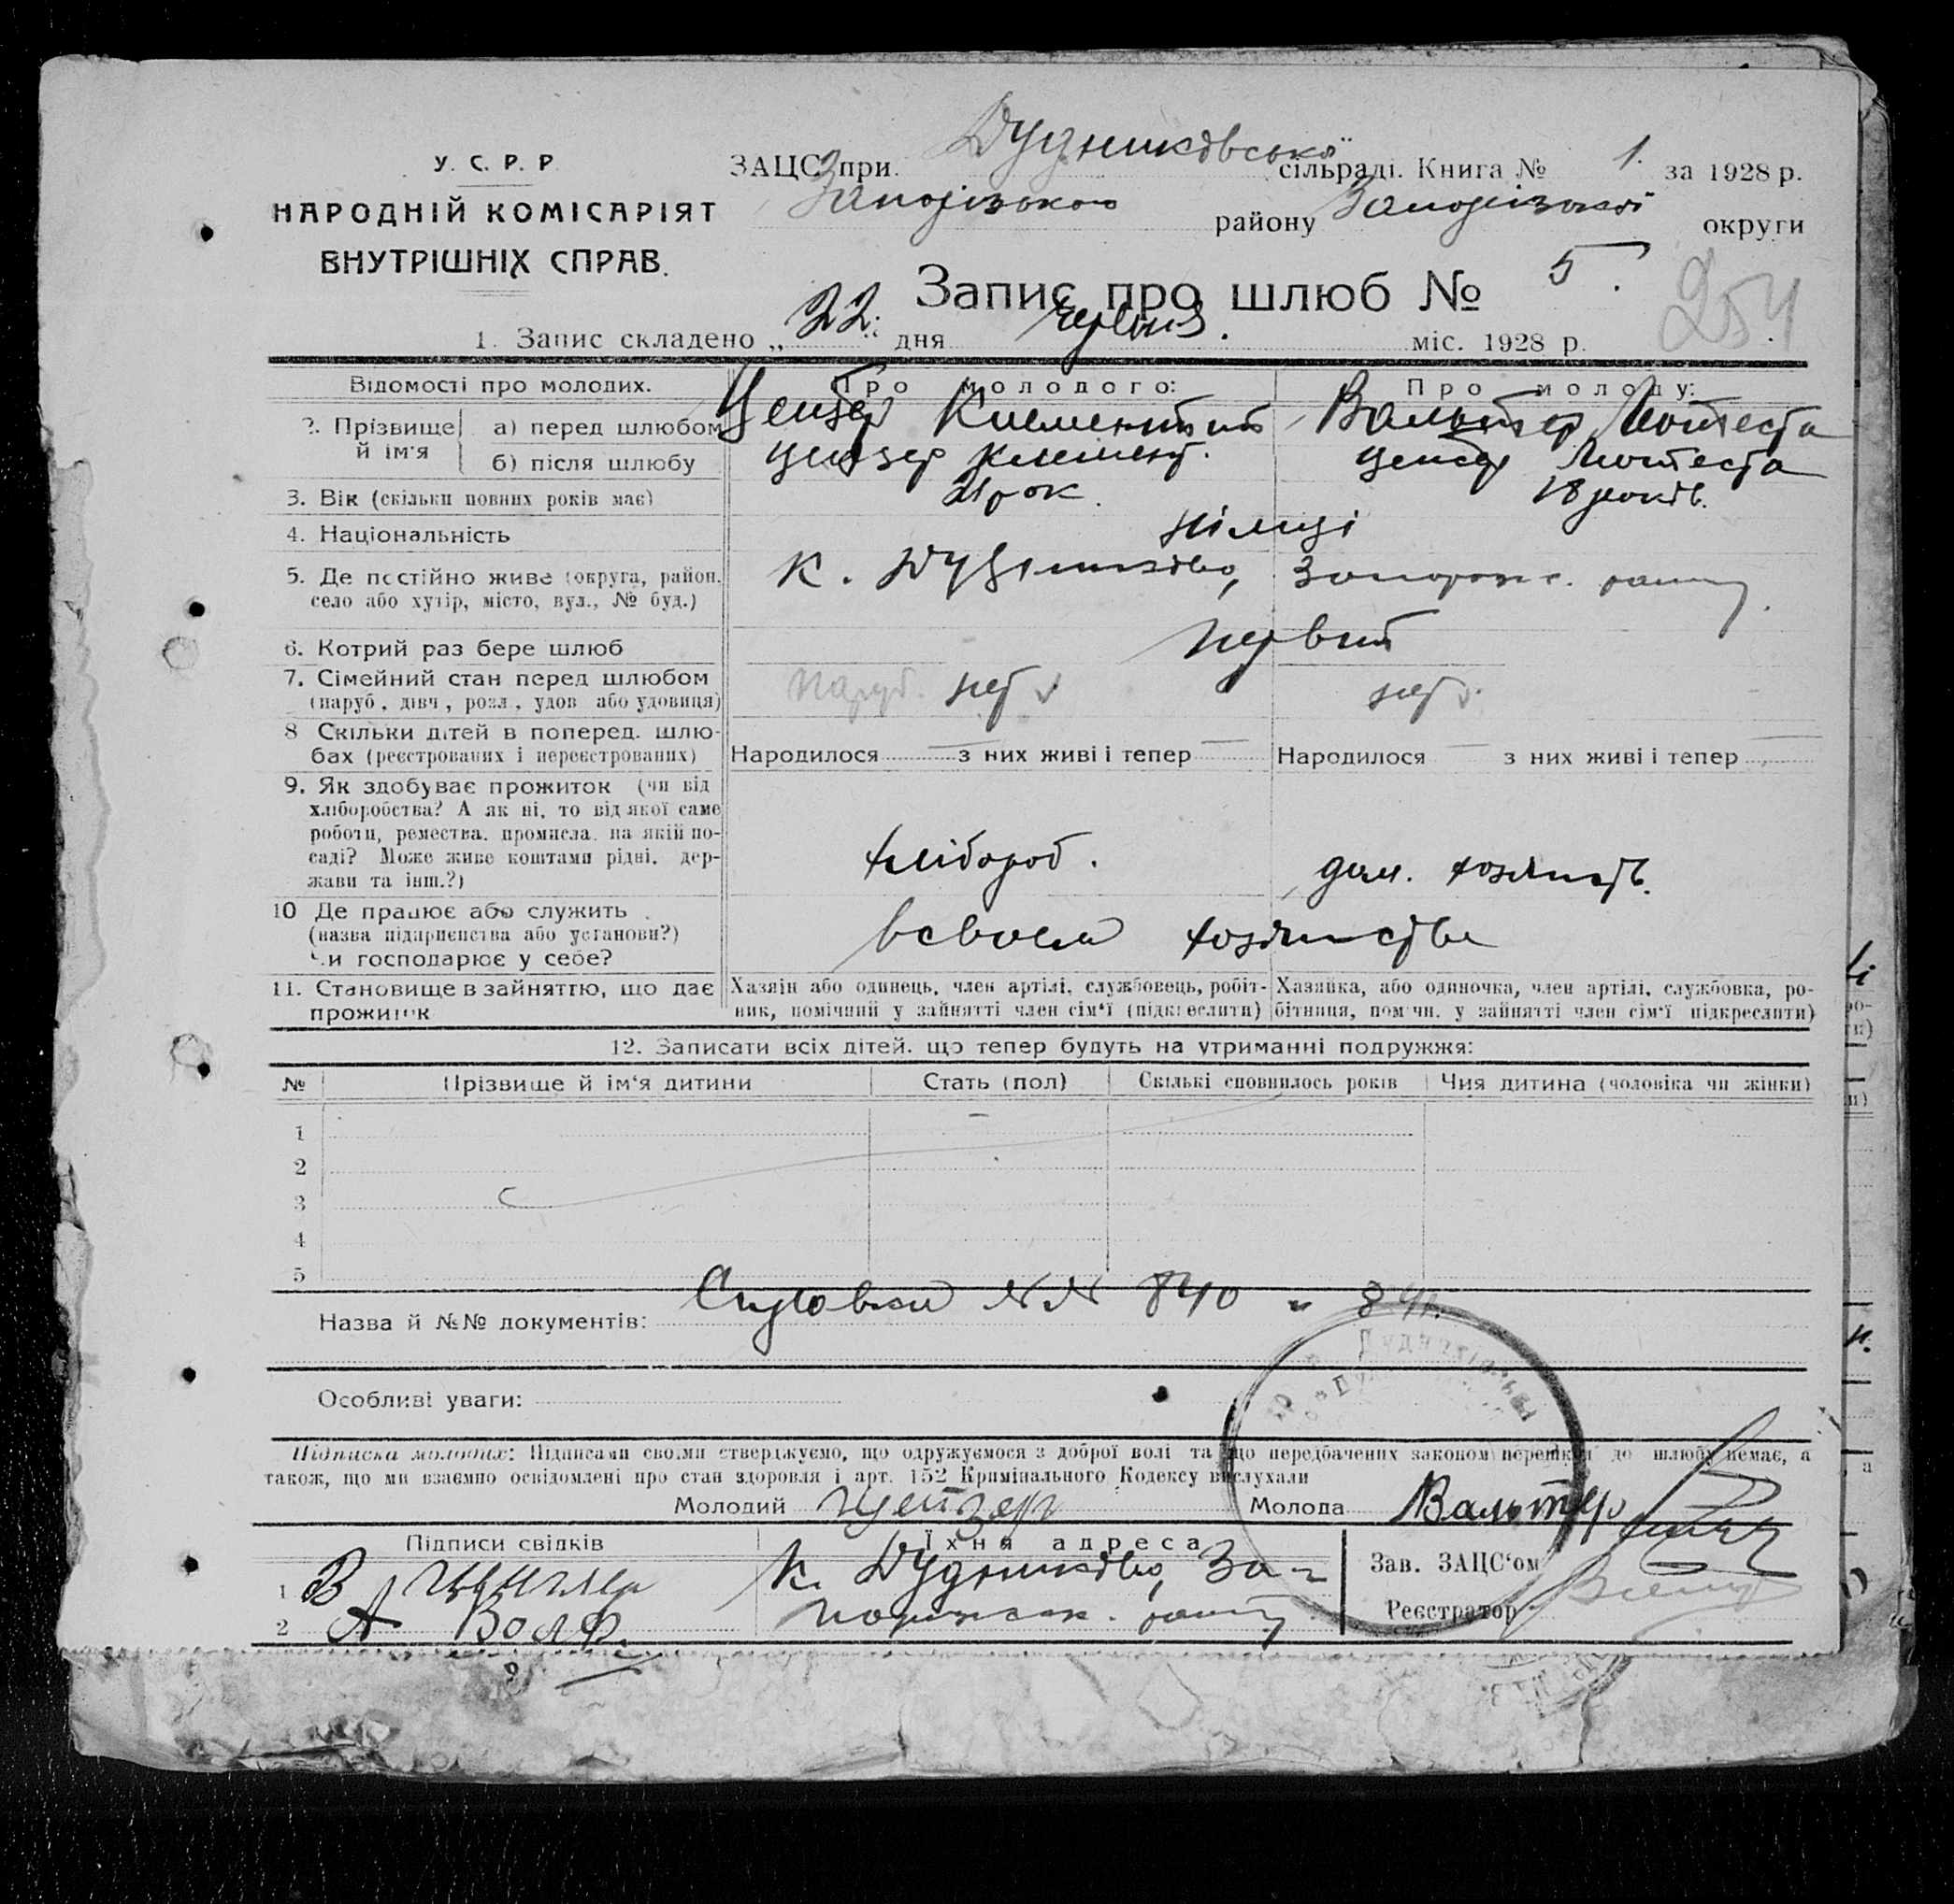 У. С. Р. Р
НАРОДНІЙ КОМІСАРІЯТ
ВНУТРІШНІХ СПРАВ.
ЗАЦС при Дудниківської сільраді. Книга № 1. за 1928 р.
Запорізького району Запорізької округи
Запис про шлюб № 5.
254
1. Запис складено „22“ дня червня. міс. 1928 р.
Відомості про молодих. Про молодого: Про молоду:
2. Прізвище й ім'я
а) перед шлюбом Цейзер Климентий Вальтер Модеста
б) після шлюбу Цейзер Климент. Цейзер Модеста
3. Вік (скільки повних років має) 21 рок. 18 років.
4. Національність німці
5. Де постійно живе (округа, район.
село або хутір, місто, вул., № буд.)
к. Дудниково, Запорож. району.
6. Котрий раз бере шлюб первий
7. Сімейний стан перед шлюбом
(паруб, дівч, розл, удов або удовиця)
паруб. нет нет
8 Скільки дітей в поперед. шлю-
бах (реєстрованих і нереєстрованих)
Народилося з них живі і тепер Народилося з них живі і тепер
9. Як здобуває прожиток (чи від
хліборобства? А як ні, то від якої саме
роботи, ремества. промисла. на якій по-
саді? Може живе коштами рідні. дер-
жави та інш.?)
хлібороб. дом. хозяист.
10 Де працює або служить
(назва підприєнства або установи?)
Чи господарює у себе?
в своем хозяистве
11. Становище в зайняттю, що дає
прожиток
Хазяін або одинець, член артілі, службовець, робіт-
ник, помічний у зайнятті член сім'ї (підкреслити)
Хазяйка, або одиночка, член артілі, службовка, ро-
бітниця, пом чн. у зайнятті член сім'ї підкреслити)
12. Записати всіх дітей. що тепер будуть на утриманні подружжя:
№ Прізвище й ім'я дитини Стать (пол) Скількі сповнилось років Чия дитина (чоловіка чи жінки)
1
2
3
4
5
Назва й №№ документів: NN 840 и 841.
Особливі уваги:
Підписка молодих: Підписами своіми стверджуємо, що одружуємося з доброї волі та що передбачених законом перешкод до шлюбу немає, а
також, що ми взаємно освідомлені про стан здоровля і арт. 152 Крімінального Кодексу вислухали
Молодий Цейзер Молода Вальтер
Підписи свідків Їхня адреса
1 В
2 А Волф.
к. Дудниково, За-
порожск. району
Зав. ЗАЦС'ом
Реєстратор